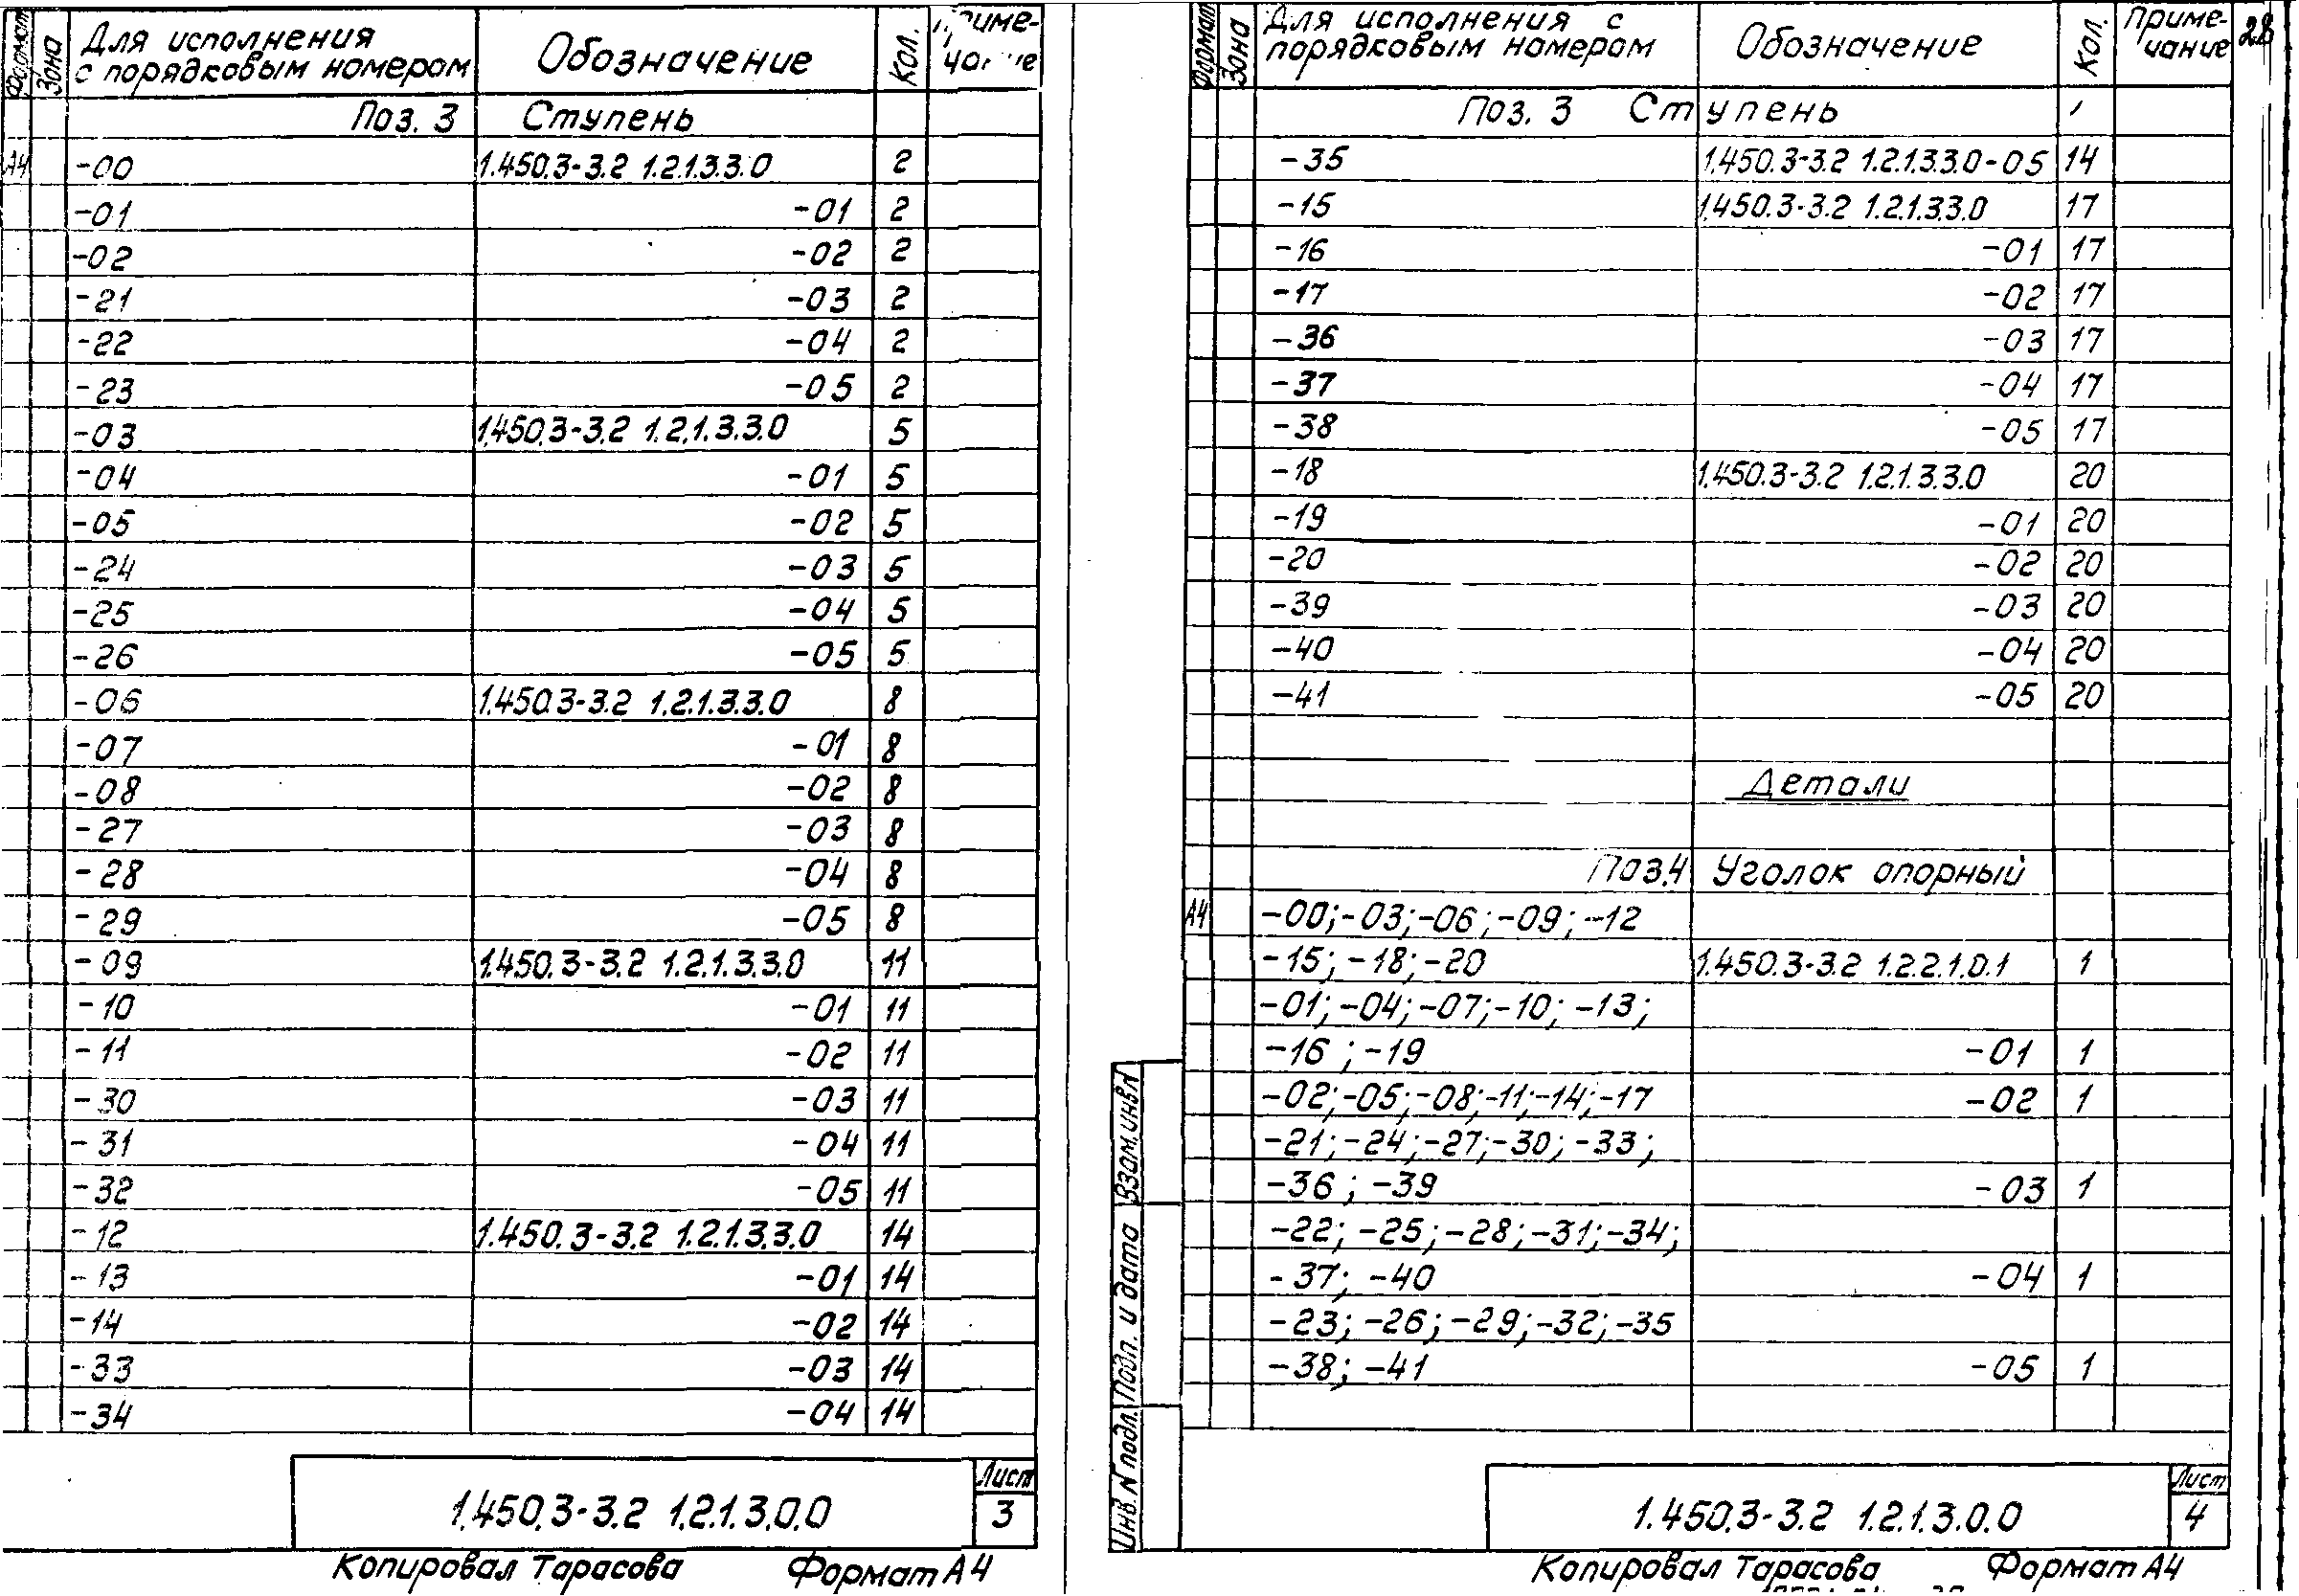 Формат Зона Для исполнения с порядковым номером Обозначение Кол. Примечание
Поз. 3 Ступень
А4 -00 1.450.3-3.2 1.2.1.3.3.0 2
-01 -01 2
-02 -02 2
-21 -03 2
-22 -04 2
-23 -05 2
-03 1.450.3-3.2 1.2.1.3.3.0 5
-04 -01 5
-05 -02 5
-24 -03 5
-25 -04 5
-26 -05 5
-06 1.450.3-3.2 1.2.1.3.3.0 8
-07 -01 8
-08 -02 8
-27 -03 8
-28 -04 8
-29 -05 8
-09 1.450.3-3.2 1.2.1.3.3.0 11
-10 -01 11
-11 -02 11
-30 -03 11
-31 -04 11
-32 -05 11
-12 1.450.3-3.2 1.2.1.3.3.0 14
-13 -01 14
-14 -02 14
-33 -03 14
-34 -04 14
1.450.3-3.2 1.2.1.3.0.0 Лист 3
Копировал Тарасова Формат А4
28
Формат Зона Для исполнения с порядковым номером Обозначение Кол. Примечание
Поз. 3 Ступень
-35 1.450.3-3.2 1.2.1.3.3.0-05 14
-15 1.450.3-3.2 1.2.1.3.3.0 17
-16 -01 17
-17 -02 17
-36 -03 17
-37 -04 17
-38 -05 17
-18 1.450.3-3.2 1.2.1.3.3.0 20
-19 -01 20
-20 -02 20
-39 -03 20
-40 -04 20
-41 -05 20
Детали
Поз.4 Уголок опорный
А4 -00;-03;-06;-09;-12
-15;-18;-20 1.450.3-3.2 1.2.2.1.0.1 1
-01;-04;-07;-10;-13;
-16;-19 -01 1
-02;-05;-08;-11;-14;-17 -02 1
-21;-24;-27;-30;-33;
-36;-39 -03 1
-22;-25;-28;-31;-34;
-37;-40 -04 1
-23;-26;-29;-32;-35
-38;-41 -05 1
Инв. № подл. Подп. и дата Взам. инв. №
1.450.3-3.2 1.2.1.3.0.0 Лист 4
Копировал Тарасова Формат А4